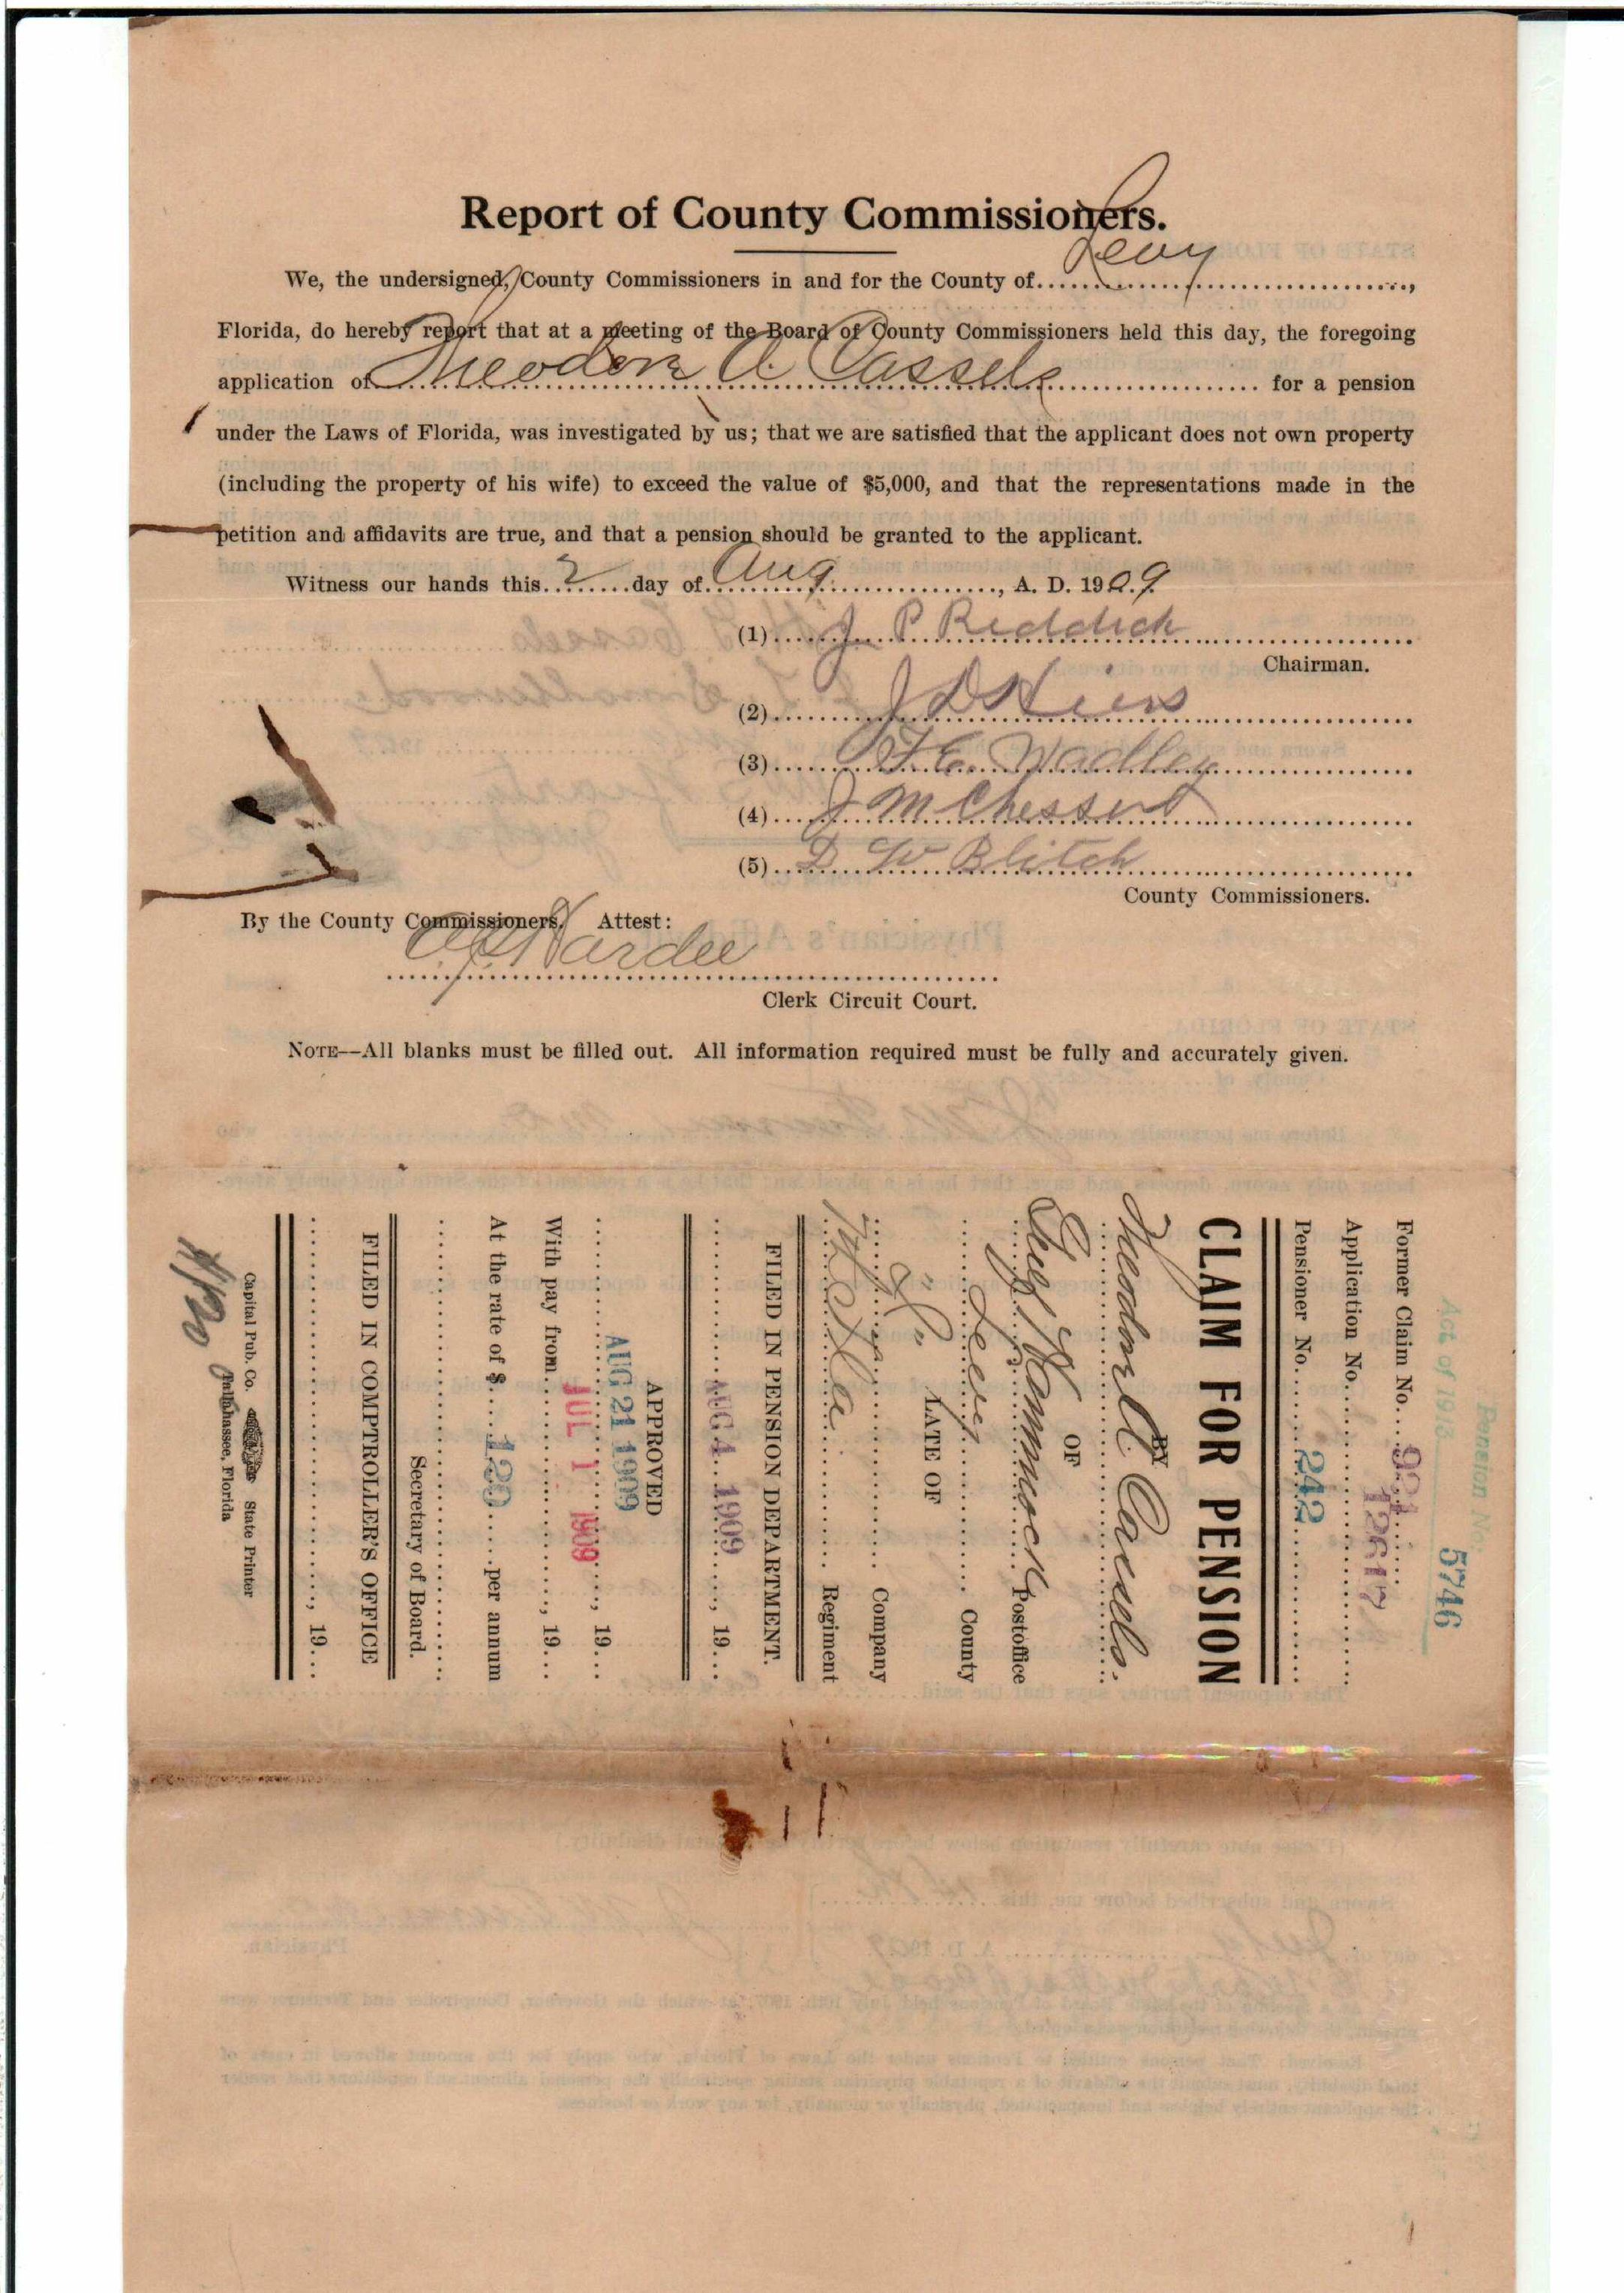 Report of County Commissioners.
We, the undersigned, County Commissioners in and for the County of Levy,
Florida, do hereby report that at a meeting of the Board of County Commissioners held this day, the foregoing
application of Theodore A. Cassels for a pension
under the Laws of Florida, was investigated by us; that we are satisfied that the applicant does not own property
(including the property of his wife) to exceed the value of $5,000, and that the representations made in the
petition and affidavits are true, and that a pension should be granted to the applicant.
Witness our hands this 2 day of Aug, A. D. 1909.
(1) J P Reddick
Chairman.
(2) J D
(3) F. E. Wadley
(4) J M Chesser
(5) D W Blitch
County Commissioners.
By the County Commissioners. Attest:
Hardee
Clerk Circuit Court.
NOTE--All blanks must be filled out. All information required must be fully and accurately given.
Pension No. 5746
Act of 1913
Former Claim No. 921
Application No. 12617
Pensioner No. 242
CLAIM FOR PENSION
BY
Theodore A. Cassels.
OF
Gulf Hammock Postoffice
Levy County
LATE OF
"H" Company
Fla Regiment
FILED IN PENSION DEPARTMENT.
AUG 4 1909, 19
APPROVED
AUG 21 1909, 19
With pay from JUL 1 1909, 19
At the rate of $ 120 per annum
Secretary of Board.
FILED IN COMPTROLLER'S OFFICE
, 19
Capital Pub. Co. State Printer
Tallahassee, Florida